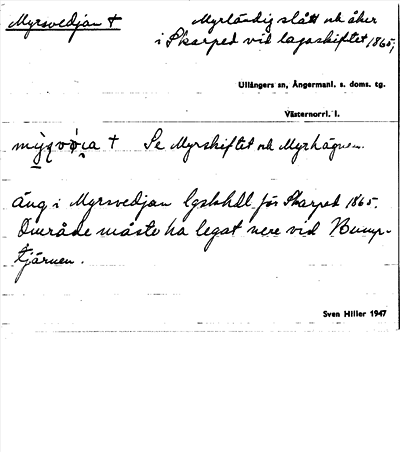 Myrsvedjan † Myrländig slått och åker
i Skarped vid lagaskiftet 1865,
Ullångers sn, Ångermanl. s. doms. tg.
Västernorrl. l.
† Se Myrskiftet och Myrhägnen.
Äng i Myrsvedjan lgskhdl. för Skarped 1865.
Område måste ha legat nere vid
tjärnen.
Sven Hiller 1947